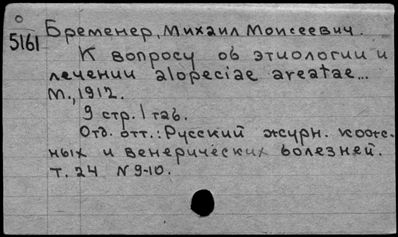 5161
Бременер, Михаил Моисеевич.
К вопросу об этиологии и
лечении alopeciae areatae...
М., 1912.
9 стр. 1 таб.
Отд. отт.: Русский журн. кож-
ных и венерических болезней.
т. 24 N 9-10.